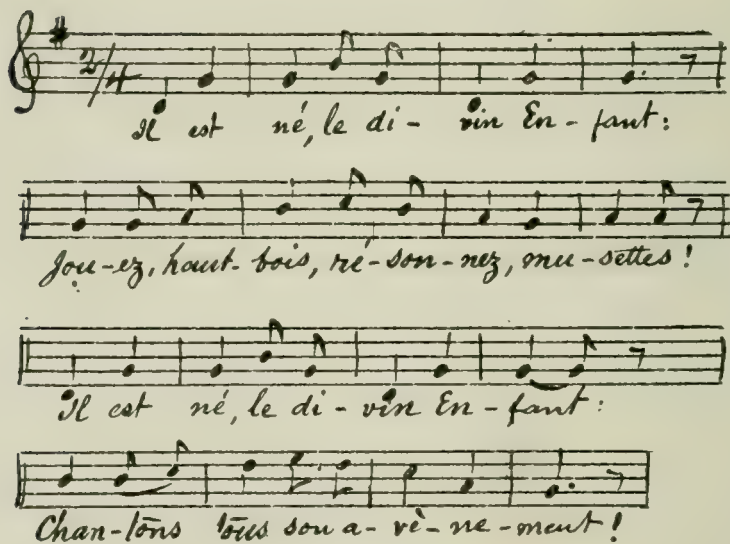 2/4
Il est né, le di- vin En- fant:
Jou-ez, haut-bois, ré-son-nez, mu-settes!
Il est né, le di- vin En- fant:
Chan-tons tous son a- vè- ne- ment!